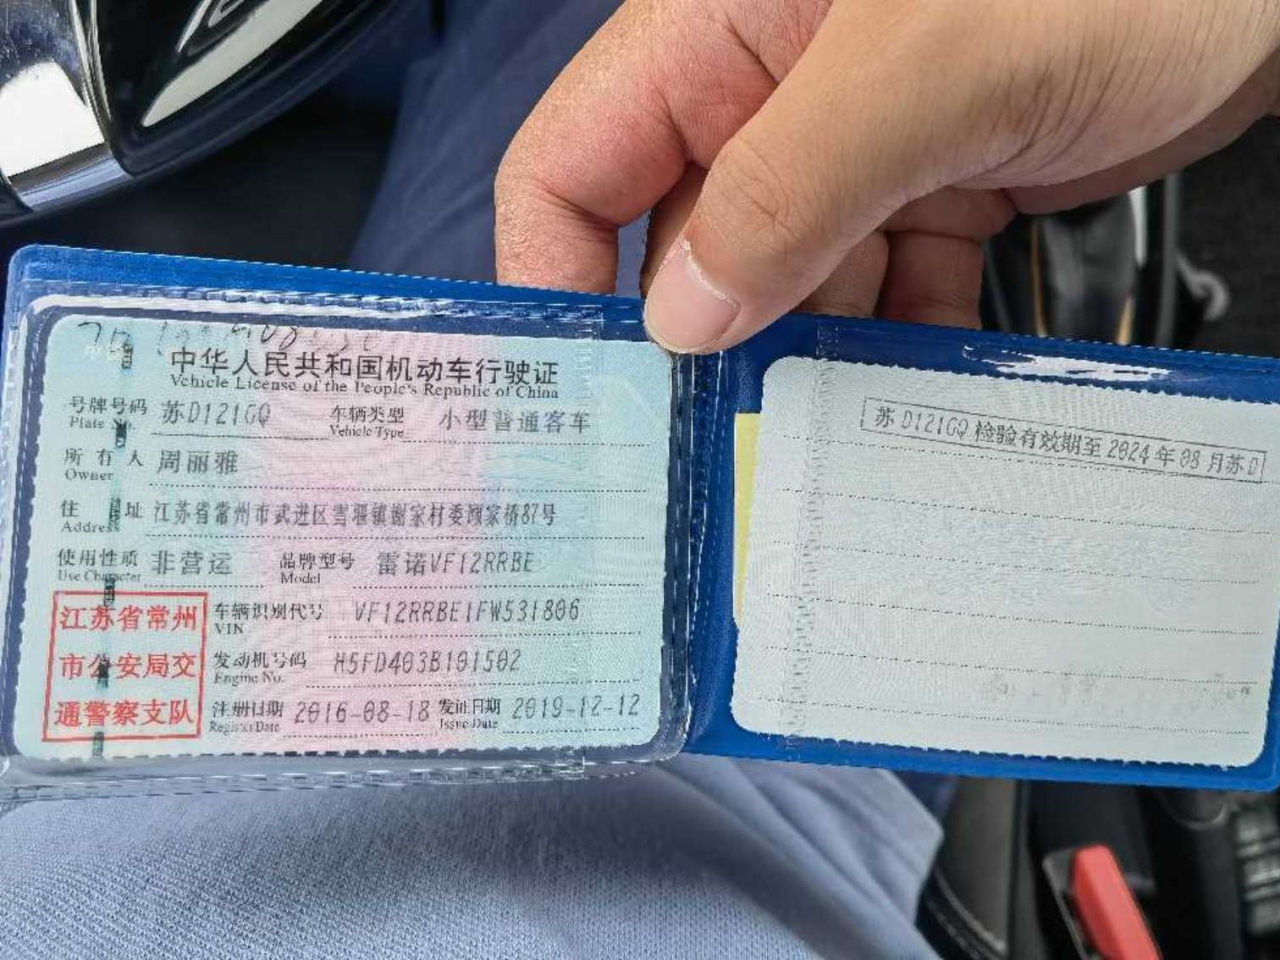 中华人民共和国机动车行驶证
Vehicle License of the People's Republic of China
号牌号码 苏D121GQ 车辆类型 小型普通客车
Plate No. Vehicle Type
所有人 周丽雅
Owner
住址 江苏省常州市武进区雪堰镇谢家村委顾家桥87号
Address
使用性质 非营运 品牌型号 雷诺VF12RRBE
Use Character Model
江苏省常州
市公安局交
通警察支队
车辆识别代号 VF12RRBE1FW531806
VIN
发动机号码 H5FD403B101502
Engine No.
注册日期 2016-08-18 发证日期 2019-12-12
Register Date Issue Date
苏D121GQ 检验有效期至 2024 年 08 月苏D